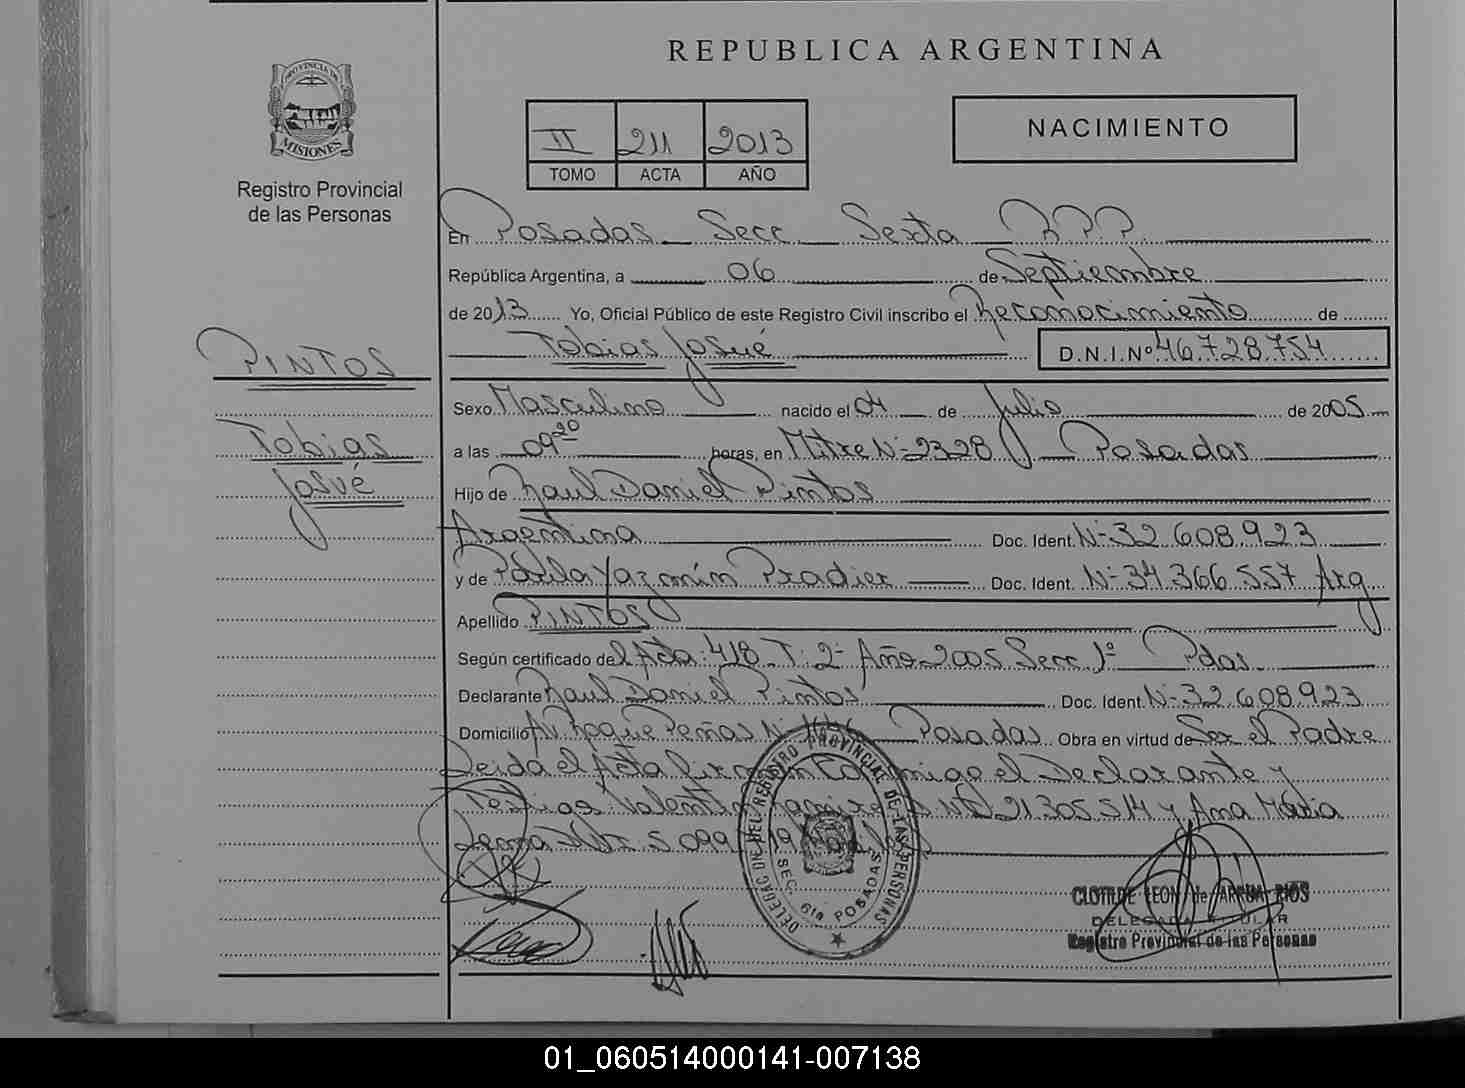 REPUBLICA ARGENTINA
PROVINCIA DE
MISIONES
Registro Provincial
de las Personas
II 211 2013
TOMO ACTA AÑO
NACIMIENTO
En Posadas Secc. Sexta R.P.P.
República Argentina, a 06 de Septiembre
de 2013 Yo, Oficial Público de este Registro Civil inscribo el Reconocimiento de
Tobias Josué D.N.I.Nº 46.728.754
PINTOS
Tobias
Josué
Sexo Masculino nacido el 04 de Julio de 2005
a las 09 20 horas, en Mitre Nº 2328 Posadas
Hijo de Raul Daniel Pintos
Argentina Doc. Ident. Nº 32.608.923
y de Yazmín Pradier Doc. Ident. Nº 34.366.557 Arg
Apellido PINTOS
Según certificado del Acta: 418 T: 2º Año 2005 Secc 1º Pdas
Declarante Raul Daniel Pintos Doc. Ident. Nº 32.608.923
Domicilio Av Roque Peñas Nº Posadas Obra en virtud de Ser el Padre
Leida el Acta firman conmigo el Declarante y
Testigos Valentin Ramirez 21.305.514 y Ana Maria
Lerma 5.099
DELEGAC. DEL REGISTRO PROVINCIAL DE LAS PERSONAS
SEC. 6ta POSADAS
CLOTILDE LEON de RIOS
DELEGADA TITULAR
Registro Provincial de las Personas
01_060514000141-007138